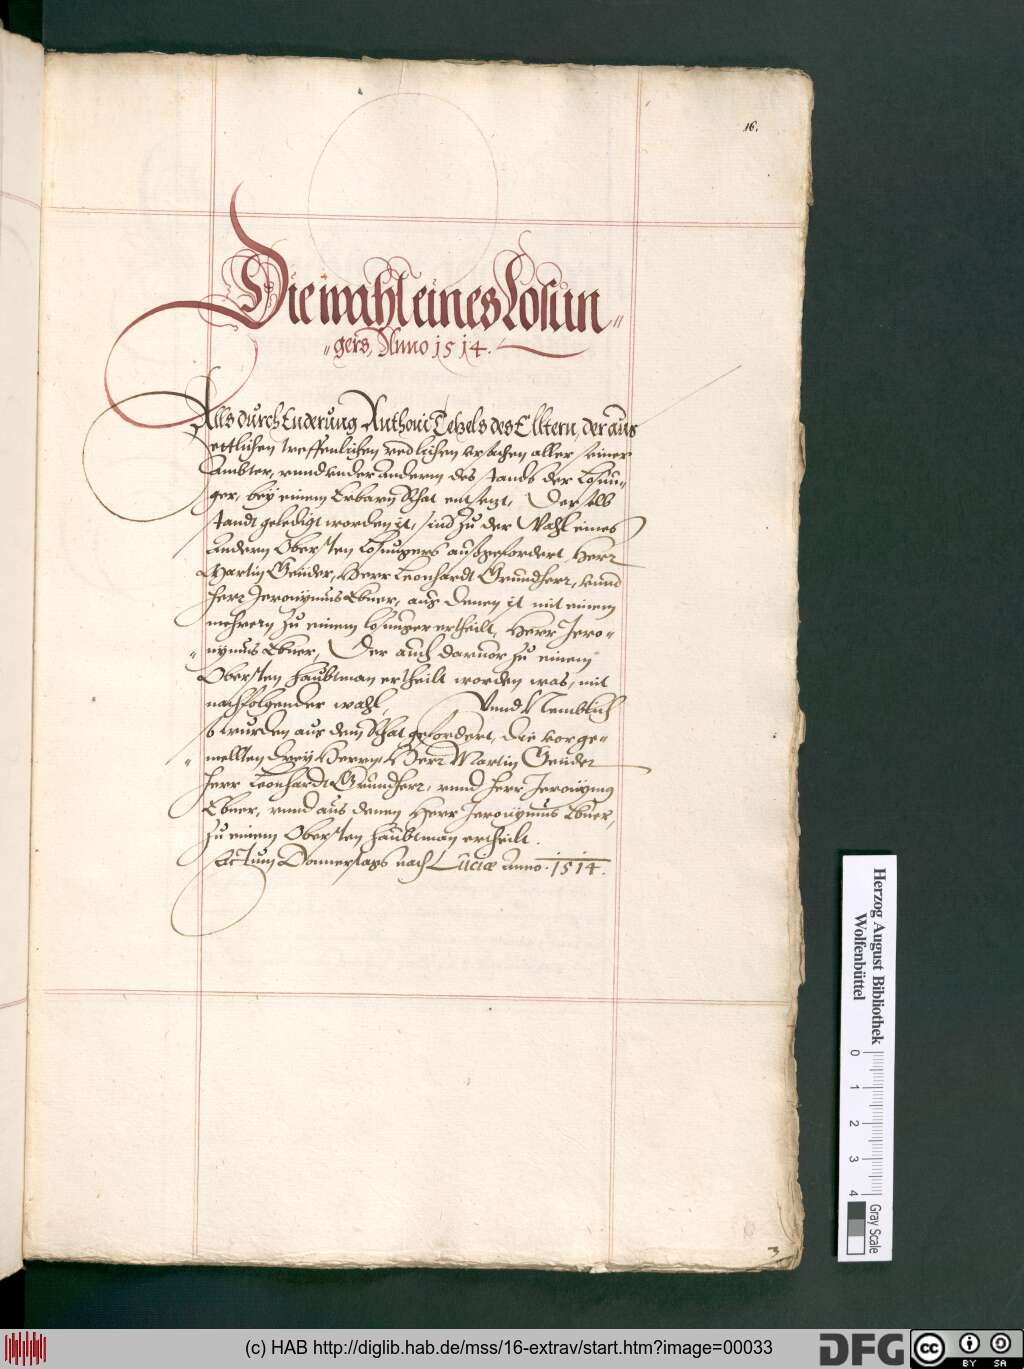 16.
Die wahl eines Losun„
„gers, Anno 1514.
Alls durch Enderung Anthoni Tetzels des Elltern, der aus
ettlichen treffenlichen redlichen vrsachen aller seiner
Ambter, vnnd vnder anderm des stands der Losun„
ger, bey einem Erbarn Rhat entsetzt, Derselb
standt geledigt worden ist, sind zu der Wahl eines
Andern Obersten Losungers außgefordert, Herr
Martin Geuder, Herr Leonhardt Grundherr, vnnd
herr Jeronymus Ebner, aus denen ist mit einem
mehrern zu einem losunger ertheilt, Herr Jero„
„nymus Ebner, Der auch daruor zu einem
Obersten haubtman ertheilt worden was, mit
nachfolgender wahl, Vnnd Nemblich
so wurden aus dem Rhat gefordert, die vorge„
„mellten drey Herrn, Herr Martin Geuder
herr Leonhardt Grundherr, vnnd herr Jeronymus
Ebner, vnnd aus denen Herr Jeronymus Ebner,
zu einem Obersten haubtman ertheilt.
Actum Donnerstags nach Luciæ Anno. 1514.
3
Herzog August Bibliothek
Wolfenbüttel
0 1 2 3 4
Gray Scale
(c) HAB http://diglib.hab.de/mss/16-extrav/start.htm?image=00033
DFG
cc BY SA